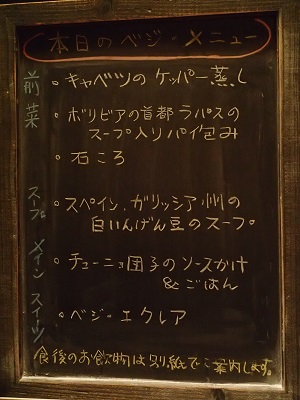 本日のベジ・メニュー
前菜
。キャベツのケッパー蒸し
。ボリビアの首都ラパスの
スープ入りパイ包み
。石ころ
スープ
。スペイン、ガリッシア州の
白いんげん豆のスープ。
メイン
。チューニョ団子のソースかけ
&ごはん
スイーツ
。ベジ-エクレア
食後のお飲物は別紙でご案内します。